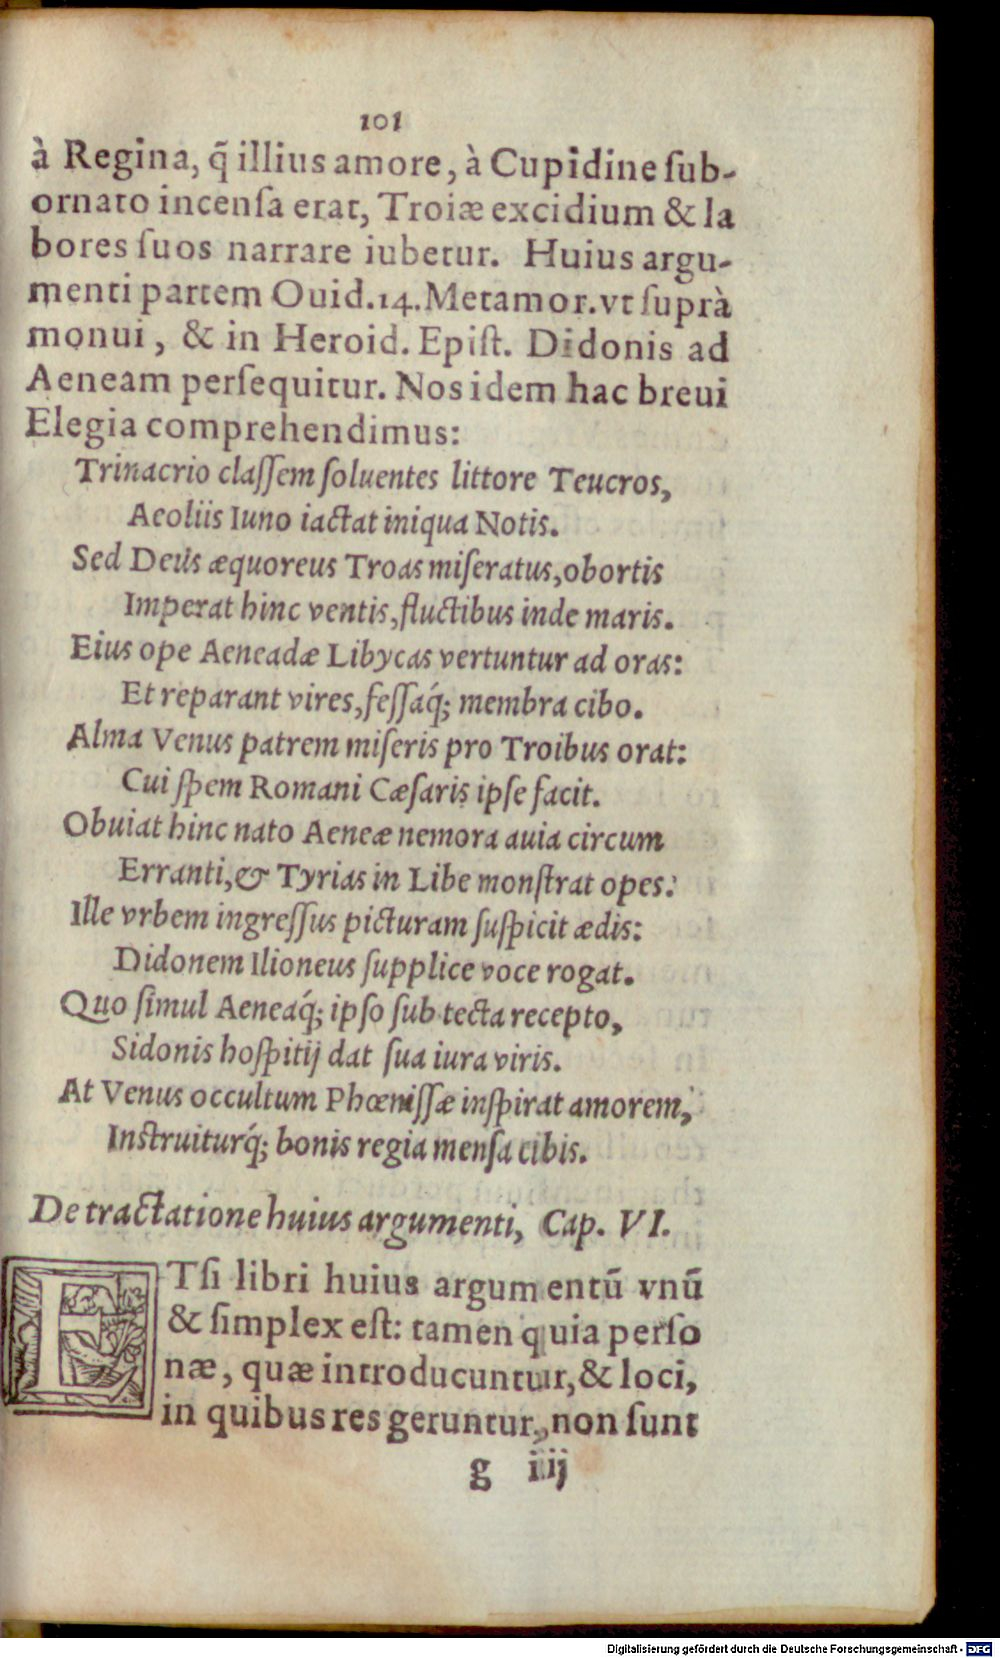 101
à Regina, q̃ illius amore, à Cupidine ſub-
ornato incenſa erat, Troiæ excidium & la
bores ſuos narrare iubetur. Huius argu-
menti partem Ouid.14.Metamor.vt ſuprà
monui, & in Heroid. Epiſt. Didonis ad
Aeneam perſequitur. Nos idem hac breui
Elegia comprehendimus:
Trinacrio claſſem ſoluentes littore Teucros,
Aeoliis Iuno iactat iniqua Notis.
Sed Deus æquoreus Troas miſeratus, obortis
Imperat hinc ventis, fluctibus inde maris.
Eius ope Aeneadæ Libycas vertuntur ad oras:
Et reparant vires, feſſaq́; membra cibo.
Alma Venus patrem miſeris pro Troibus orat:
Cui ſpem Romani Cæſaris ipſe facit.
Obuiat hinc nato Aeneæ nemora auia circum
Erranti, & Tyrias in Libe monſtrat opes:
Ille vrbem ingreſſus picturam ſuſpicit ædis:
Didonem Ilioneus ſupplice voce rogat.
Quo ſimul Aeneaq́; ipſo ſub tecta recepto,
Sidonis hoſpitij dat ſua iura viris.
At Venus occultum Phœniſſæ inſpirat amorem,
Inſtruiturq́; bonis regia menſa cibis.
De tractatione huius argumenti, Cap. VI.
ETſi libri huius argumentũ vnũ
& ſimplex eſt: tamen quia perſo
næ, quæ introducuntur, & loci,
in quibus res geruntur, non ſunt
g iij
Digitalisierung gefördert durch die Deutsche Forschungsgemeinschaft - DFG